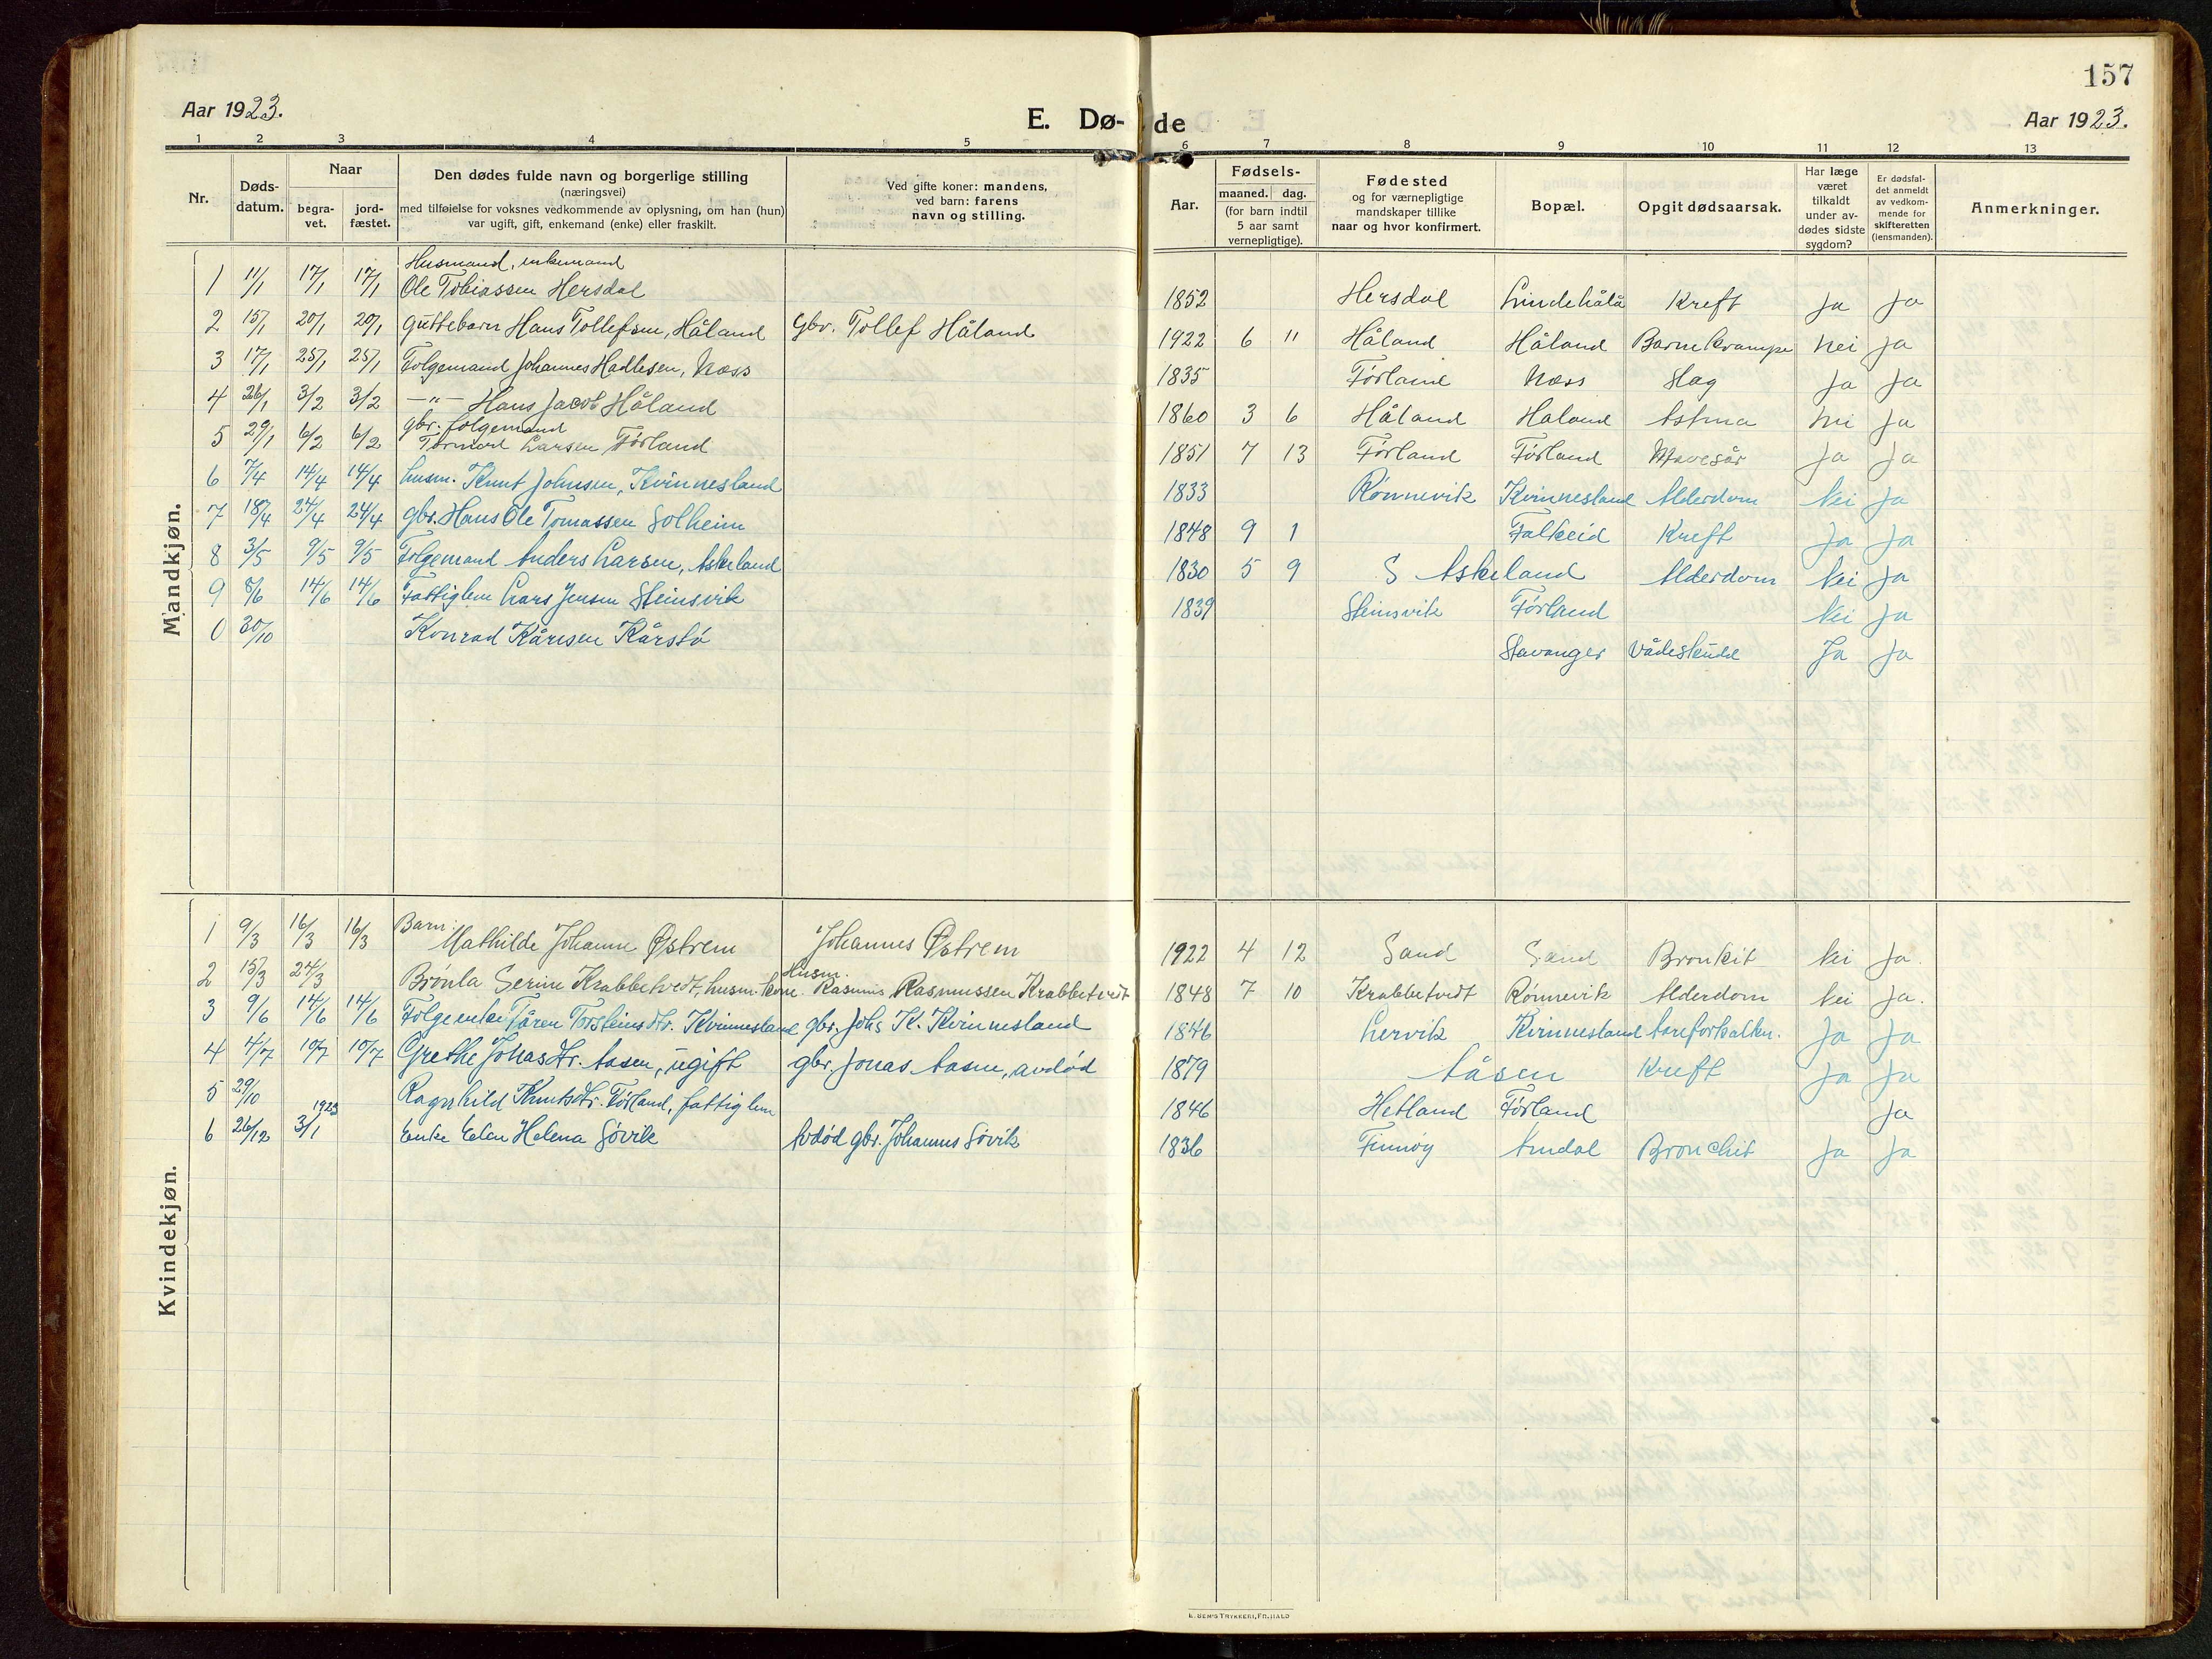 157
Aar 1923.
E. Dø-de
Aar 1923.
1 2 3 4 5 6 7 8 9 10 11 12 13
Nr.
Døds-datum.
Naar
begra-vet.
jord-fæstet.
Den dødes fulde navn og borgerlige stilling
(næringsvei)
med tilføielse for voksnes vedkommende av oplysning, om han (hun)
var ugift, gift, enkemand (enke) eller fraskilt.
Ved gifte koner: mandens,
ved barn: farens
navn og stilling.
Aar.
Fødsels-
maaned. dag.
(for barn indtil
5 aar samt
vernepligtige).
Fødested
og for værnepligtige
mandskaper tillike
naar og hvor konfirmert.
Bopæl.
Opgit dødsaarsak.
Har læge
været
tilkaldt
under av-
dødes sidste
sygdom?
Er dødsfal-
det anmeldt
av vedkom-
mende for
skifteretten
(lensmanden).
Anmerkninger.
Mandkjøn.
Husmand, enkemand
1 11/1 17/1 17/1 Ole Tobiassen Hersdal 1852 Hersdal Lindehålå Kreft Ja Ja
2 15/1 20/1 20/1 Guttebarn Hans Tollefsen, Håland Gbr. Tollef Håland 1922 6 11 Håland Håland Barnekrampe Nei Ja
3 17/1 25/1 25/1 Folgemand Johannes Hadlesen, Næss 1835 Førland Næss Slag Ja Ja
4 26/1 3/2 3/2 —"— Hans Jacob Håland 1860 3 6 Håland Håland Astma Nei Ja
gbr. folgemand
5 29/1 6/2 6/2 Tormod Larsen Førland 1851 7 13 Førland Førland Mavesår Ja Ja
6 7/4 14/4 14/4 husm. Knut Johnsen, Kvinnesland 1833 Rønnevik Kvinnesland Alderdom Nei Ja
7 18/4 24/4 24/4 gbr. Hans Ole Tomassen Solheim 1848 9 1 Falkeid Kreft Ja Ja
8 3/5 9/5 9/5 Folgemand Anders Larsen, Askeland 1830 5 9 S Askeland Alderdom Nei Ja
9 8/6 14/6 14/6 Fattiglem Lars Jensen Steinsvik 1839 Steinsvik Førland Nei Ja
0 30/10 Konrad Kåresen Kårstø Stavanger Vådeskudd Ja Ja
Kvindekjøn.
Barn:
1 9/3 16/3 16/3 Mathilde Johanne Østrem Johannes Østrem 1922 4 12 Sand Sand Bronkit Nei Ja.
Husm.
2 15/3 24/3 Brønla Serine Krabbetvedt, husm.kone Rasmus Rasmussen Krabbetvedt 1848 7 10 Krabbetvedt Rønnevik Alderdom Nei Ja.
3 9/6 14/6 14/6 Folgeenke Tåren Torsteinsdtr. Kvinnesland gbr. Johs K. Kvinnesland 1846 Lervik Kvinnesland Åreforkalkn. Ja Ja
4 4/7 10/7 10/7 Grethe Jonasdtr. Aasen, ugift gbr. Jonas Aasen, avdød 1879 Aåsen Kreft Ja Ja
5 29/10 Ragnhild Knutsdtr. Førland, fattiglem 1846 Hetland Førland Ja
1923
6 26/12 3/1 Enke Elen Helena Søvik Avdød gbr. Johannes Søvik 1836 Finnøy Amdal Bronchit Ja Ja
E. SEM'S TRYKKERI, FR.HALD